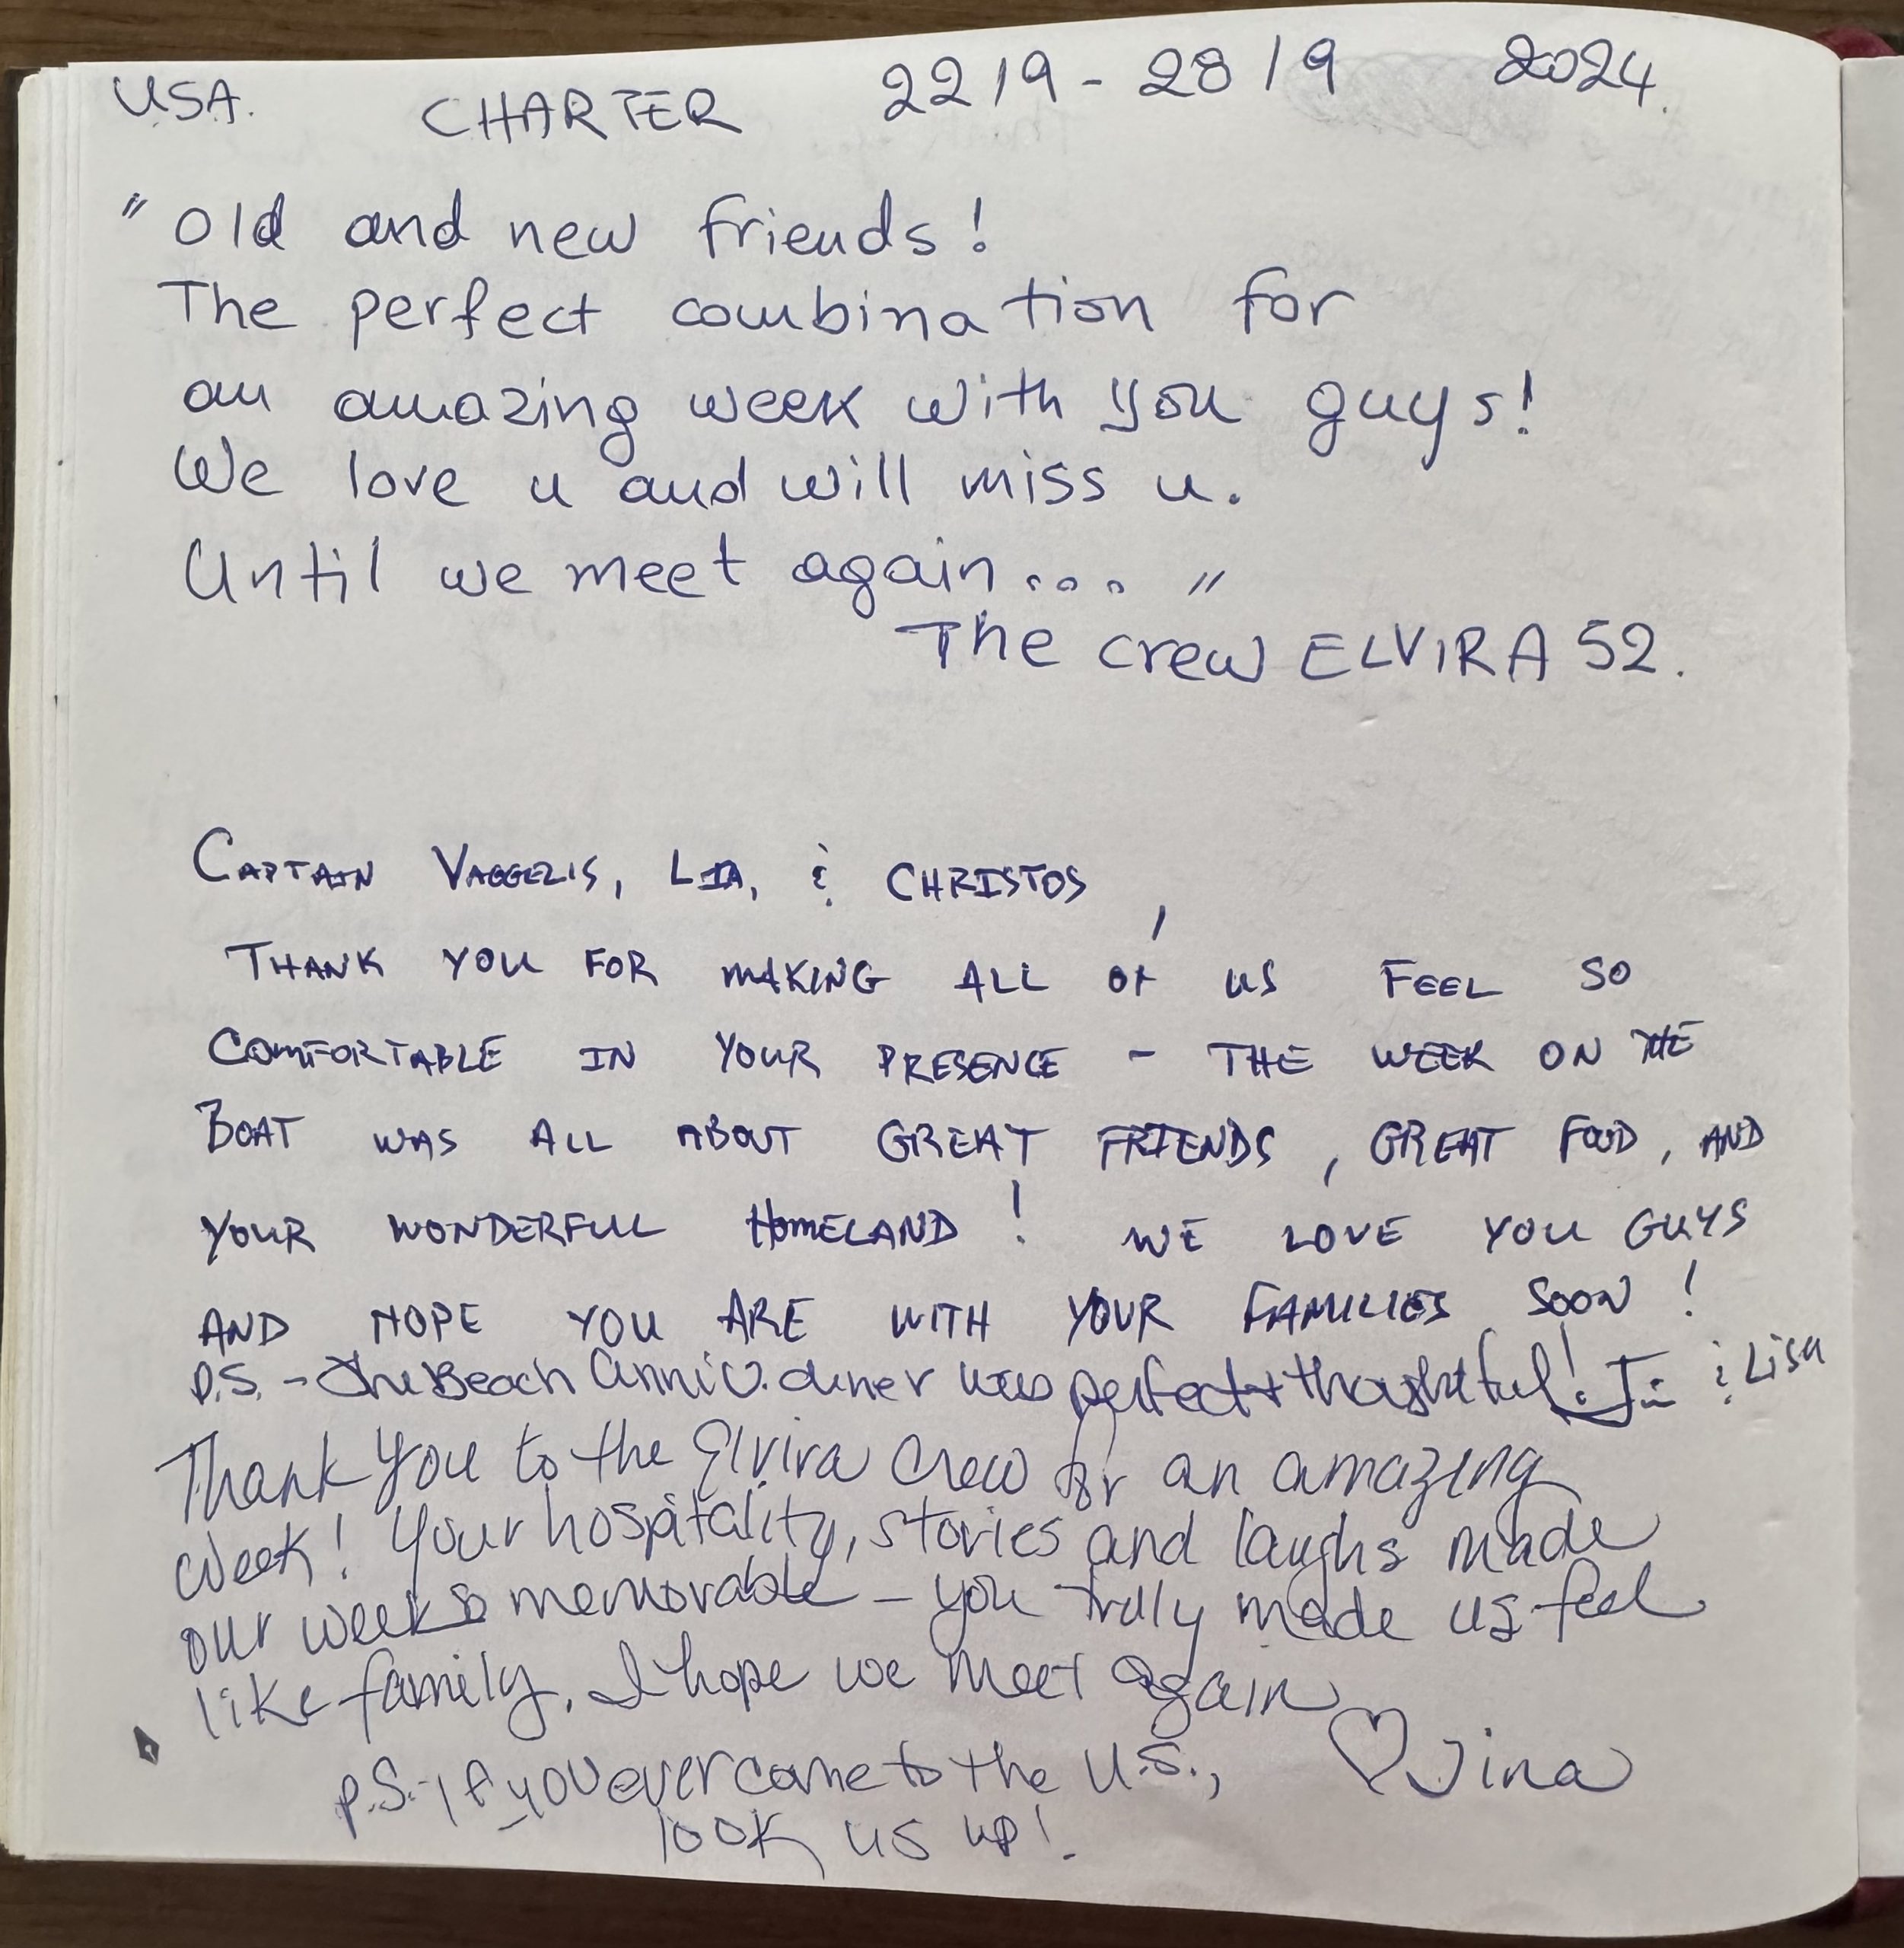 USA. CHARTER 22/9 - 28/9 2024.
"Old and new friends!
The perfect combination for
an amazing week with you guys!
We love u and will miss u.
Until we meet again.... "
The crew ELVIRA 52.
CAPTAIN VAGGELIS, LIA, & CHRISTOS,
THANK YOU FOR MAKING ALL OF US FEEL SO
COMFORTABLE IN YOUR PRESENCE - THE WEEK ON THE
BOAT WAS ALL ABOUT GREAT FRIENDS, GREAT FOOD, AND
YOUR WONDERFUL HOMELAND! WE LOVE YOU GUYS
AND HOPE YOU ARE WITH YOUR FAMILIES SOON!
P.S. - The Beach Anniv. diner was perfect + thoughtful! & Lisa
Thank you to the Elvira Crew for an amazing
week! Your hospitality, stories and laughs made
our week so memorable - you truly made us feel
like family. I hope we meet again
♡ Jina
P.S. - If you ever come to the U.S.,
look us up!